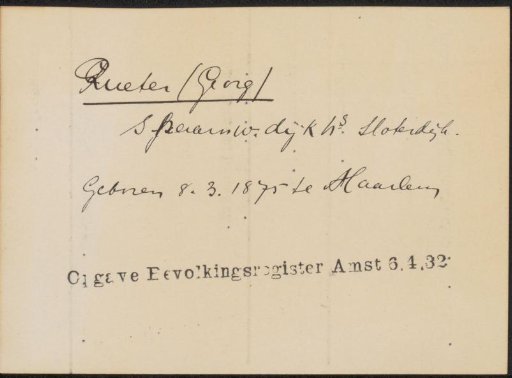 Rueter (Georg)
Spaarnw. dijk hs. Sloterdijk.
Geboren 8.3.1875 te Haarlem
Opgave Bevolkingsregister Amst 6.4.32